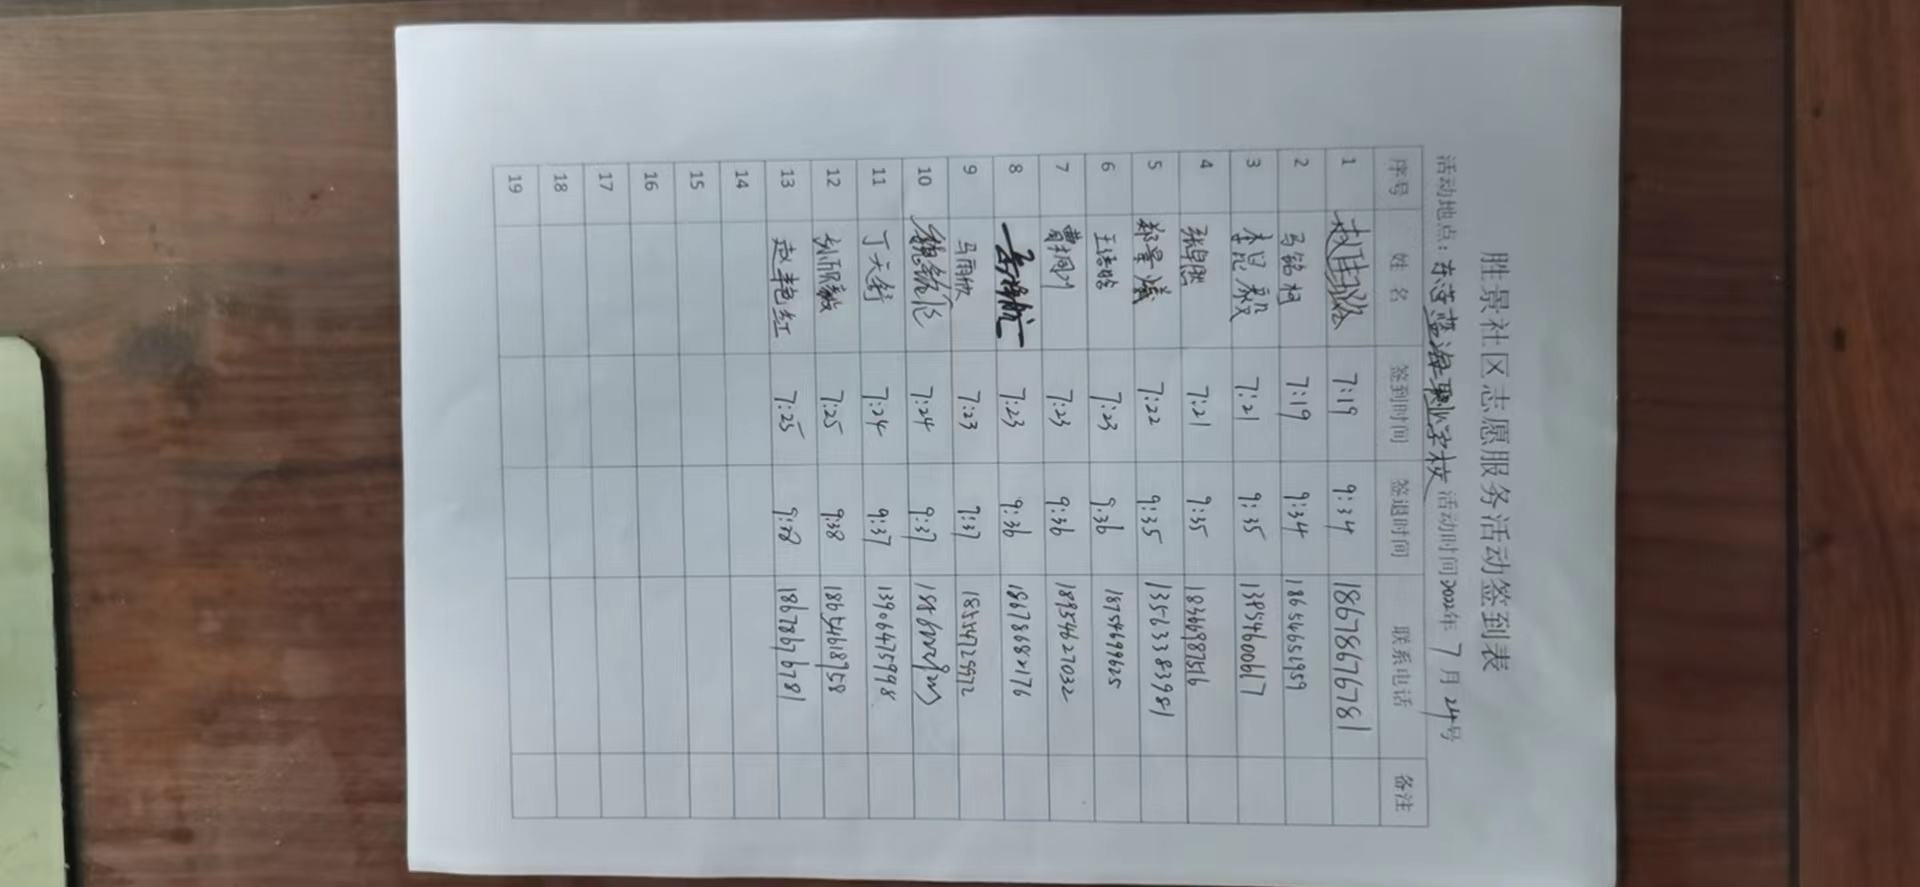 胜景社区志愿服务活动签到表
活动地点：东营蓝海职业学校 活动时间2022年 7月 24号
序号 姓名 签到时间 签退时间 联系电话 备注
1 7:19 9:34 18678676781
2 马铭柯 7:19 9:34 18654651959
3 李昆毅 7:21 9:35 13854600617
4 7:21 9:35 18366987516
5 郑景 7:22 9:35 13563383981
6 王 7:23 9:36 18754699625
7 曹 7:23 9:36 18954627032
8 7:23 9:36
9 马雨欣 7:23 9:37 18554725572
10 魏 7:24 9:37
11 丁天 7:24 9:37 13906475998
12 刘 7:25 9:38 18654618958
13 赵艳红 7:25 9:28 18678676781
14
15
16
17
18
19